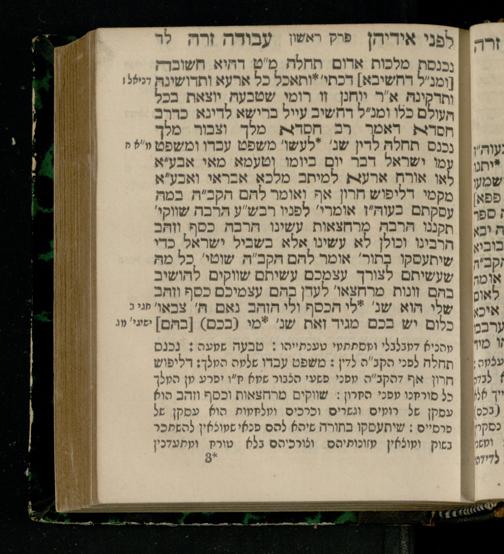 לפני אידיהן פרק ראשון עבודה זרה לד
נכנסת מלכות אדום תחלה מ"ט דהיא חשובה
[ומנ"ל דחשיבא] דכתי' *ותאכל כל ארעא ותדושינה דניאל ז
ותדקינה א"ר יוחנן זו רומי שטבעה יוצאת בכל
העולם כלו ומנ"ל דחשיב עייל ברישא לדינא כדרב
חסדא דאמר רב חסדא מלך וצבור מלך
נכנס תחלה לדין שנ' *לעשו' משפט עבדו ומשפט מ"א ח
עמו ישראל דבר יום ביומו וטעמא מאי אבע"א
לאו אורח ארעא למיתב מלכא אבראי ואבע"א
מקמי דליפוש חרון אף ואומר להם הקב"ה במה
עסקתם בעוה"ז אומרי' לפניו רבש"ע הרבה שווקי'
תקננו הרבה מרחצאות עשינו הרבה כסף וזהב
הרבינו וכולן לא עשינו אלא בשביל ישראל כדי
שיתעסקו בתור' אומר להם הקב"ה שוטי' כל מה
שעשיתם לצורך עצמכם עשיתם שווקים להושיב
בהם זונות מרחצאו' לעדן בהם עצמיכם כסף וזהב
שלי הוא שנ' *לי הכסף ולי הזהב נאם ה' צבאו' חגי ב
כלום יש בכם מגיד זאת שנ' *מי (בכם) [בהם] ישעי' מג
טבעה שמעה: נכנס
תחלה לפני הקב"ה לדין: משפט עבדו שלמה המלך: דליפוש
חרון אף דהקב"ה מפני פשעי הצבור שמא ח"ו יפרע מן המלך
כל סורחנו מפני החרון: שווקים מרחצאות וכסף וזהב הוא
עסקן של רומיים וגשרים וכרכים ומלחמות הוא עסקן של
פרסיים: שיתעסקו בתורה שיהא להם פנאי שמוצאין להשתכר
בשוק ומוצאין מזונותיהם וצורכיהם בלא טורח ומתעדנין
3*